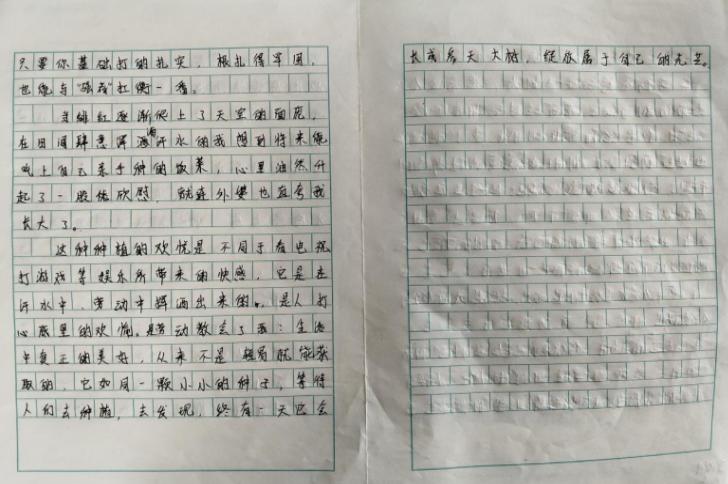 只要你基础打的扎实，根扎得牢固，
也能与“强者”扛衡一番。
绯红逐渐爬上了天空的面庞，
在田间肆意挥洒汗水的我想到将来能
吃上自己亲手种的蔬菜，心里油然升
起了一股欣慰，就连外婆也直夸我
长大了。
这种种植的欢悦是不同于看电视
打游戏等娱乐所带来的快感，它是在
汗水中，劳动中挥洒出来的，是人打
心底里的欢愉。是劳动教会了我：生活
中真正的美好，从来不是轻易就能获
取的，它如同一颗小小的种子，等待
人们去种植，去发现，终有一天它会
长成参天大树，绽放属于自己的光芒。